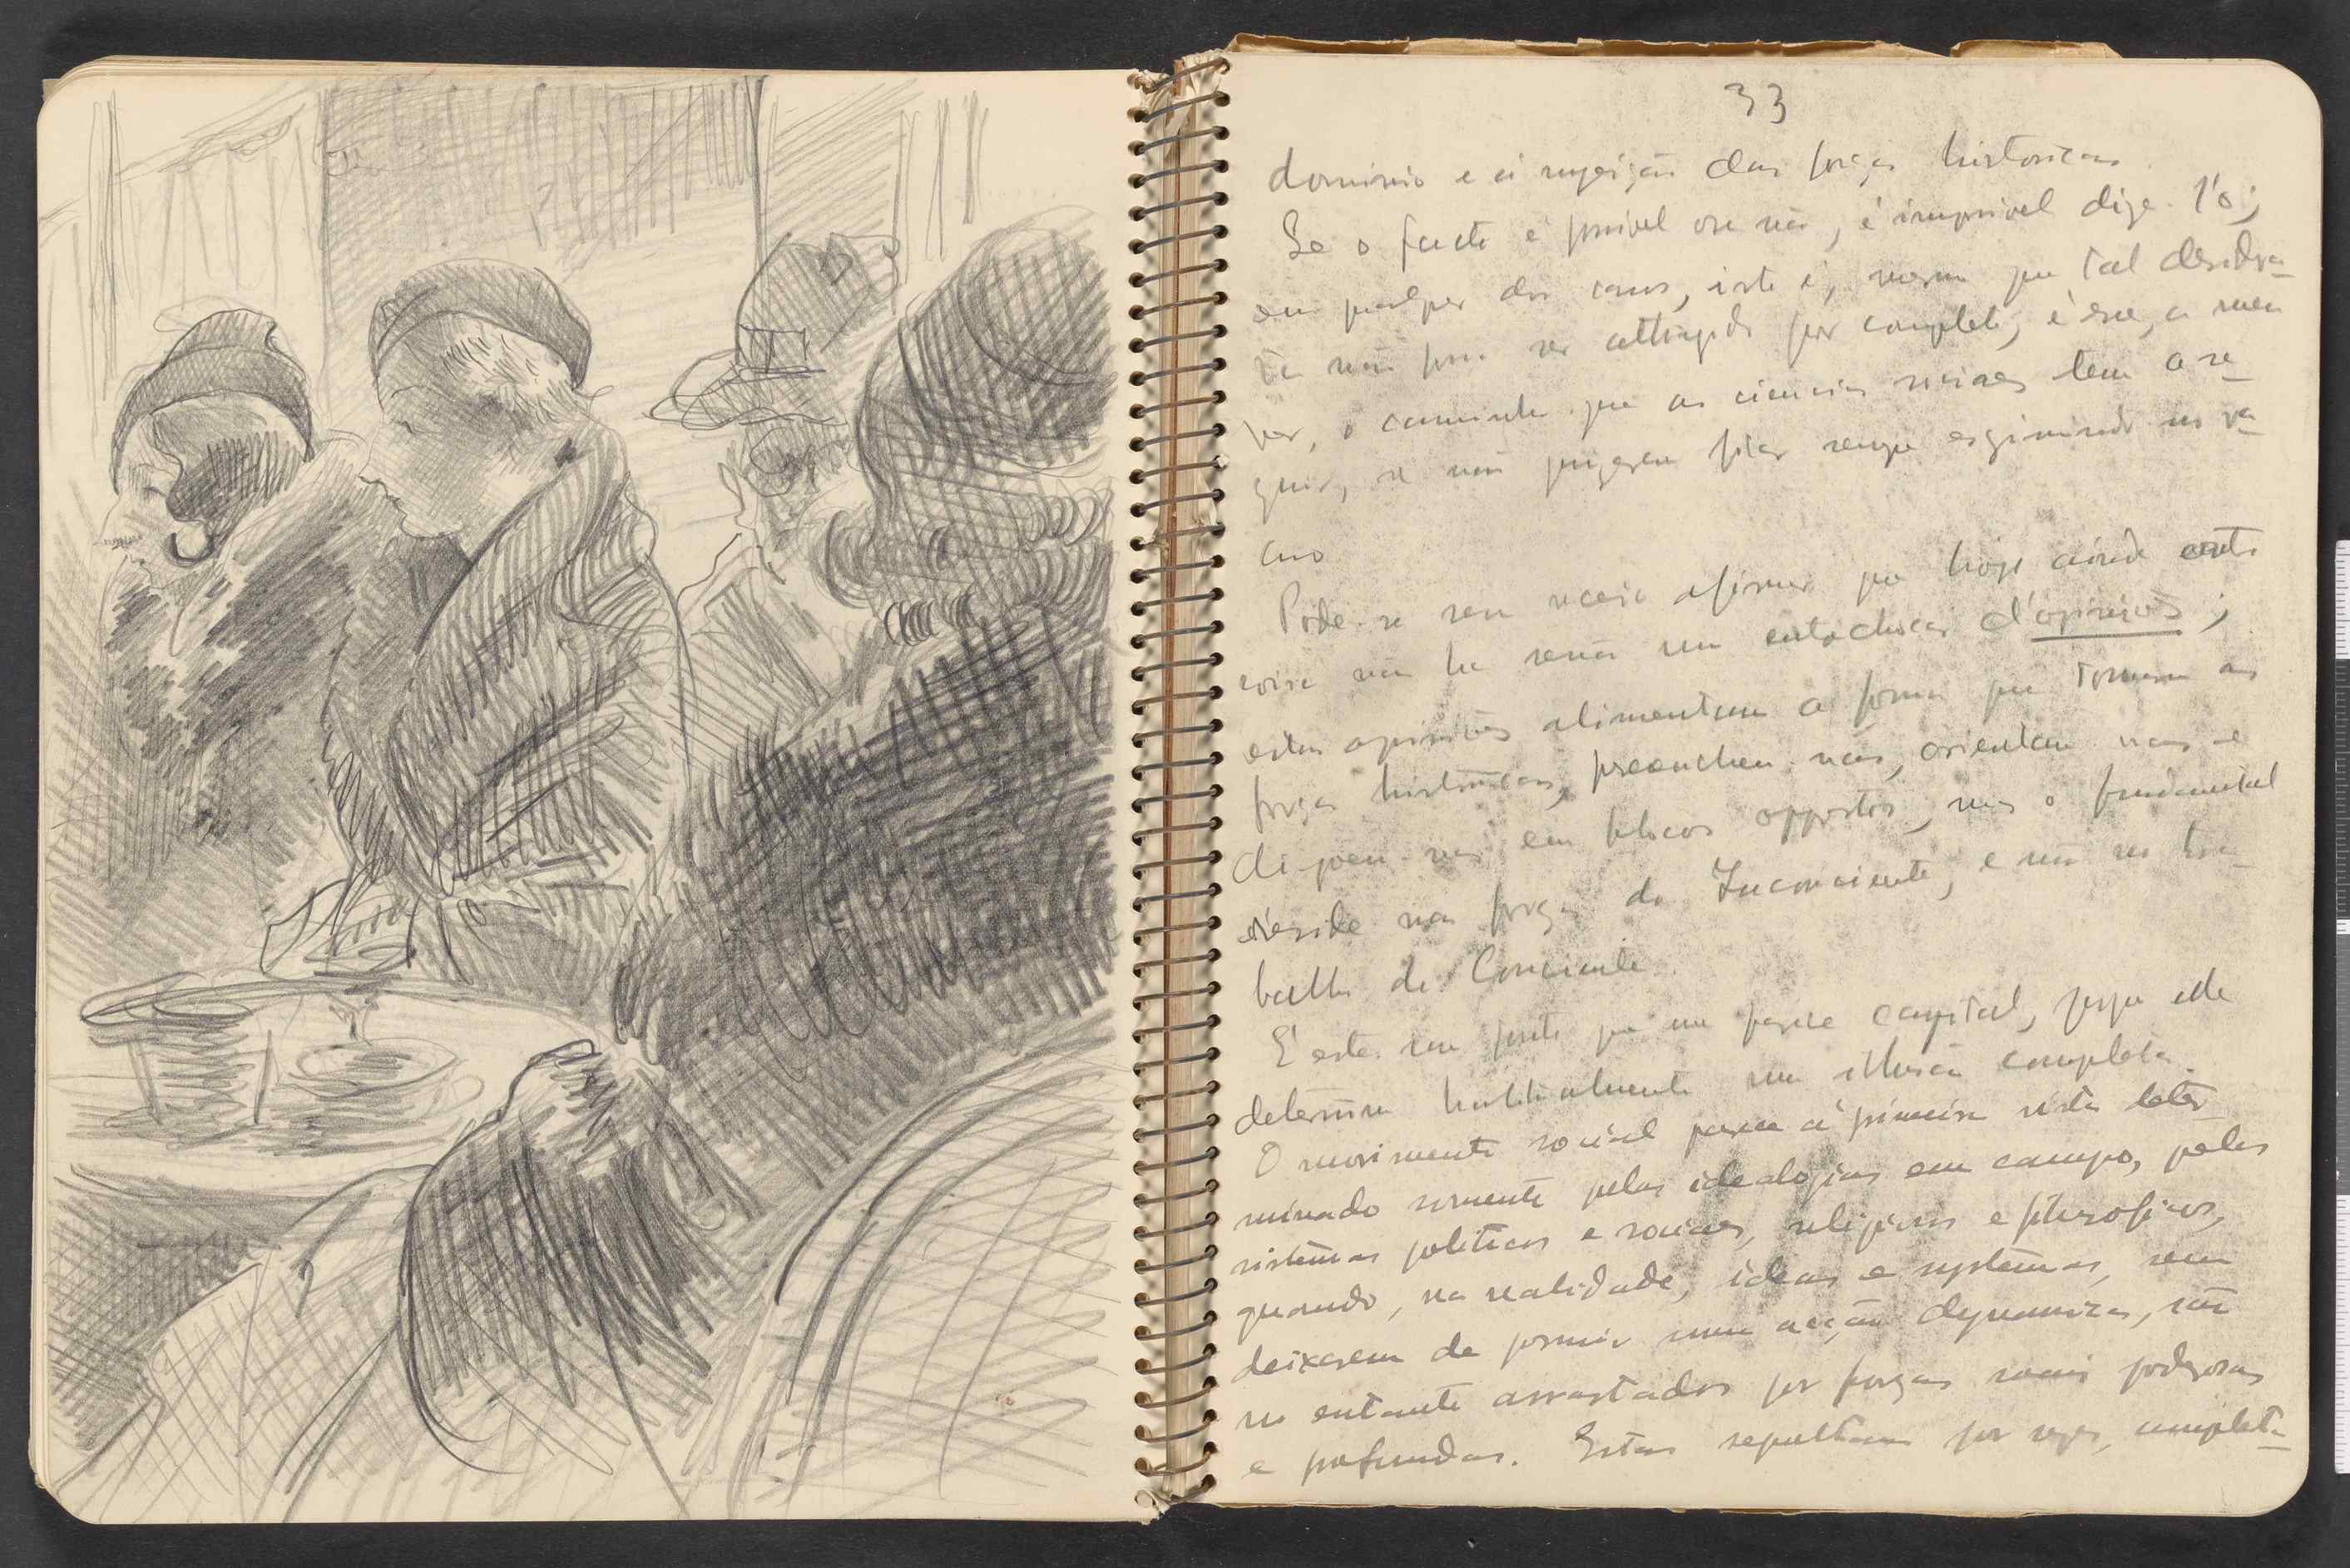 33
dominio e á sugeição das forças historicas
Se o facto é possivel ou não, é impossivel dize-l'o;
em qualquer dos casos, isto é, mesmo que tal desidera-
ta não possa ser attingido por completo, é esse, a meu
ver, o caminho que as ciencias sociaes tem a se-
guir, se não quizerem ficar sempre esgrimindo no va-
cuo
Pode-se sem receio afirmar que hoje ainda outra
coisa não ha senão um entrechocar d'opiniões;
estas opiniões alimentam a forma que tomam as
forças historicas, preenchem-nas, orientam-nas e
dispoem-nas em blocos oppostos, mas o fundamental
reside nas forças do Inconsciente, e não no tra-
balho do Consciente
E' este um ponto que me parece capital, porque ele
determina habitualmente uma illusão completa.
O movimento social parece á primeira vista deter-
minado somente pelas idealogias em campo, pelos
sistemas politicos e sociaes, religiosos e filosoficos,
quando, na realidade, ideias e systemas, sem
deixarem de possuir uma acção dynamica, são
no entanto arrastados por forças mais poderosas
e profundas. Estas sepultam por vezes, completa-